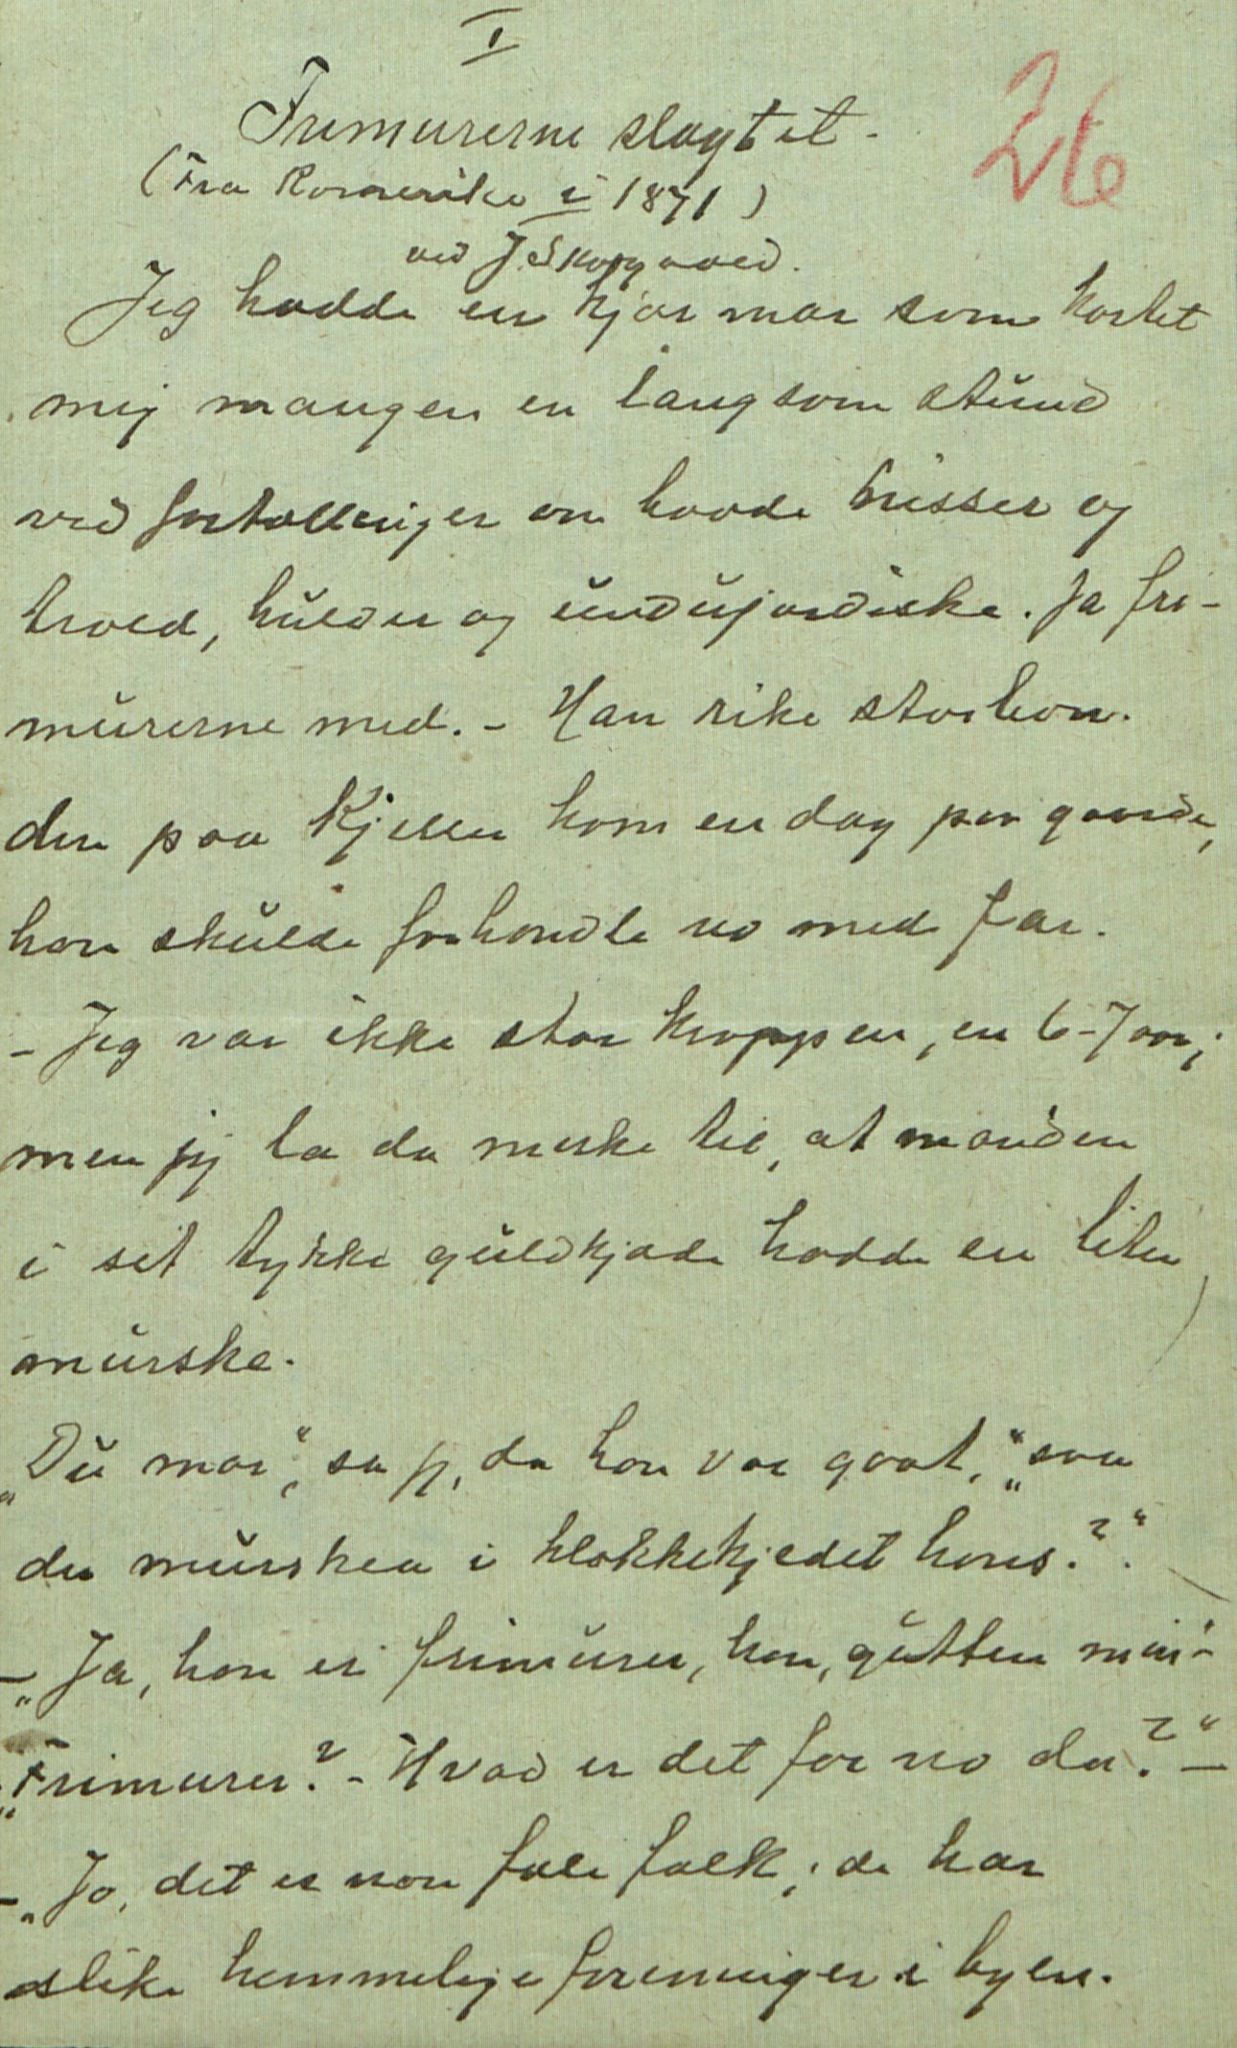 I
26
Frimurerne slagtet.
(Fra Romerike i 1871)
ved J. Skovgaard.
Jeg hadde en kjær mor som kortet
mig mangen en langsom stund
ved fortællinger om baade nisser og
trold, hulder og underjordiske. Ja fri-
murerne med. - Han rike storbon-
den paa Kjeller kom en dag paa gaarde,
han skulde forhandle no med far.
- Jeg var ikke stor kroppen, en 6-7 aar;
men jeg la da merke til, at manden
i sit tykke guldkjæde hadde en liten
murske.
"Du mor", sa jeg, da han var gaat, "saa
du murskea i klokkekjedet hans?".
- "Ja, han er frimurer, han, gutten min -
"Frimurer? - Hvad er det for no da?" -
- "Jo, det er non fæle folk; de har
slike hemmelige foreninger i byen.